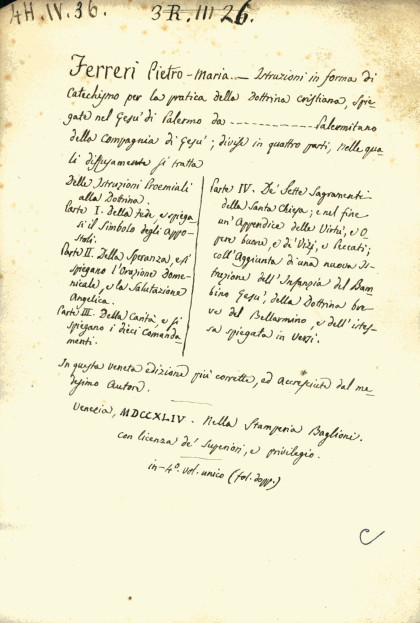 4H.IV.36.
3R.III 26.
Ferreri Pietro-Maria. — Istruzioni in forma di
Catechismo per la pratica della Dottrina cristiana, spie-
gate nel Gesù di Palermo da - - - - - - - - - - - - - Palermitano
della Compagnia di Gesù; divise in quattro parti, nelle qua-
li diffusamente si tratta
Delle Istruzioni Proemiali
alla Dottrina.
Parte I. Della Fede, e spiega-
si il Simbolo degli Appo-
stoli.
Parte II. Della Speranza, e si
spiegano l'Orazione Dome-
nicale, e la Salutazione
Angelica.
Parte III. Della Carità, e si
spiegano i dieci Comanda-
menti.
Parte IV. De' Sette Sagramenti
della Santa Chiesa; e nel fine
un'Appendice delle Virtù, e O-
pere buone, e di Vizj, e Peccati;
coll'Aggiunta d'una nuova Is-
truzione dell'Infanzia del Bam-
bino Gesù, della Dottrina bre-
ve del Bellarmino, e dell'istes-
sa spiegata in Versi.
In questa veneta edizione più corrette, ed Accresciute dal me-
desimo Autore.
Venezia, MDCCXLIV. Nella Stamperia Baglioni.
con licenza de' Superiori, e privilegio.
in-4º. vol. unico (fol. dopp.)
C